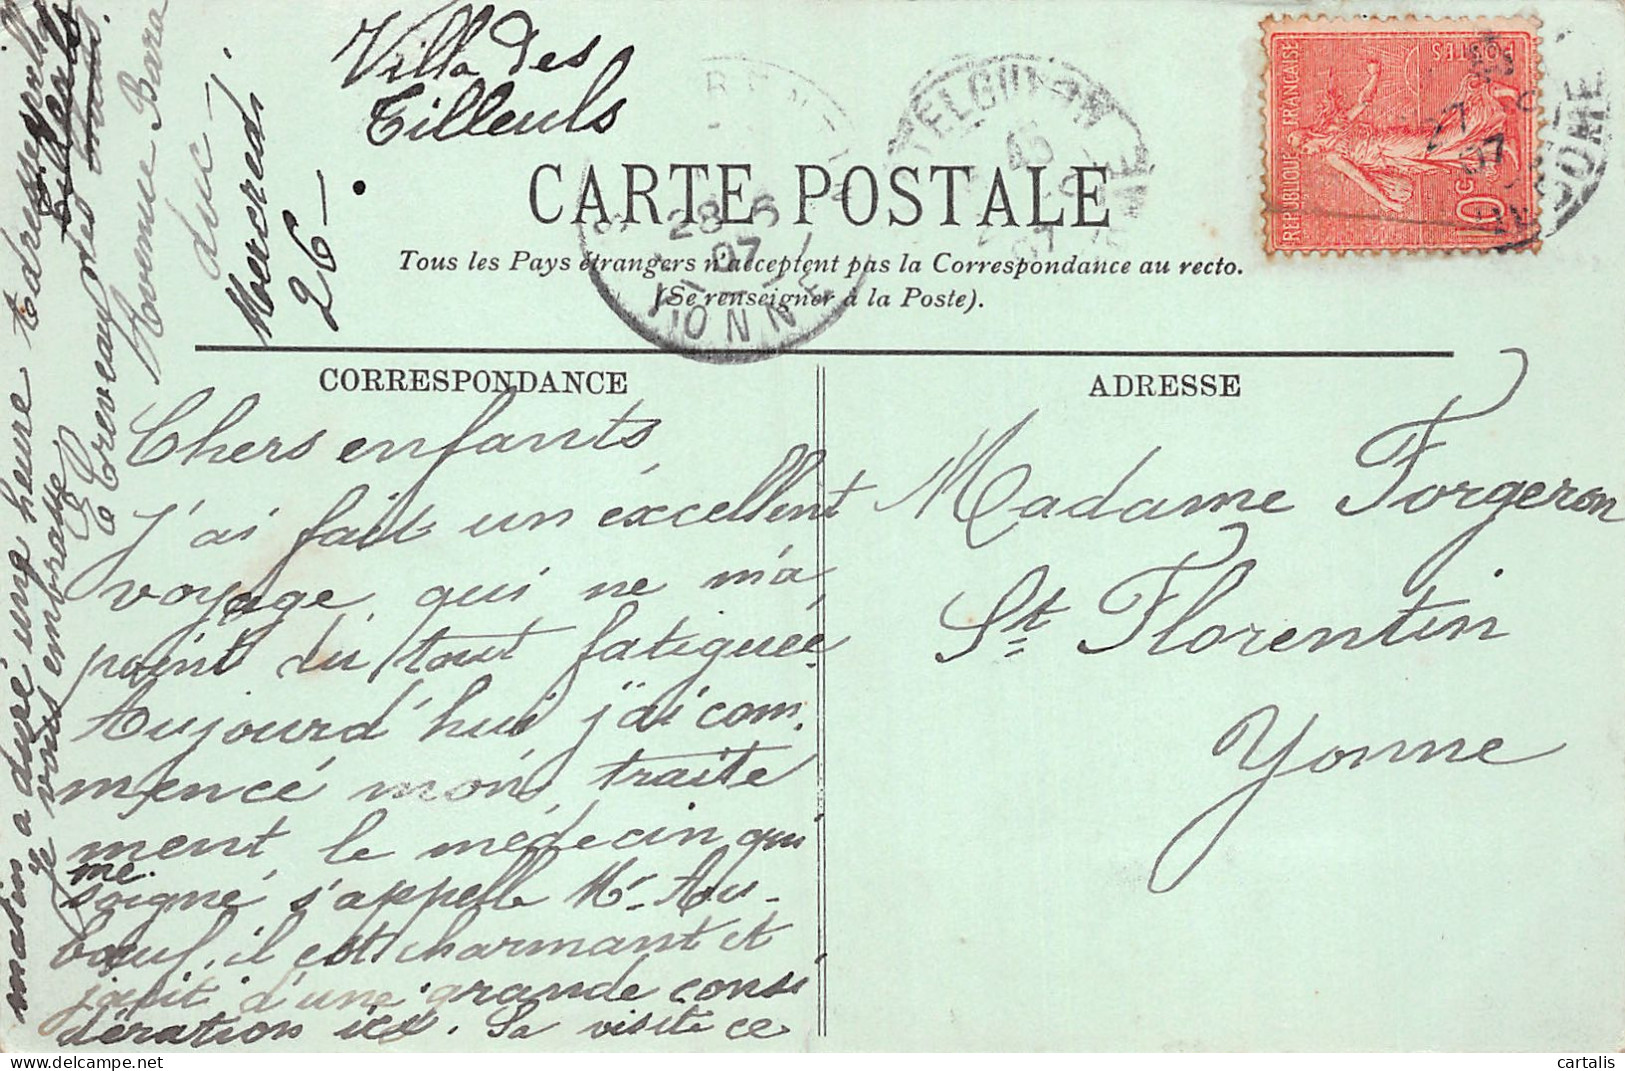 Villa des
Tilleuls
Mercredi
26 -
CARTE POSTALE
Tous les Pays étrangers n'acceptent pas la Correspondance au recto.
(Se renseigner à la Poste).
CORRESPONDANCE
ADRESSE
Chers enfants
J'ai fait un excellent
voyage, qui ne m'a
point du tout fatiguée.
Aujourd'hui j'ai com
mencé mon traite
ment, le médecin qui
me
soigne, s'appelle Mr. Au-
bœuf, il est charmant et
jouit d'une grande consi
dération ici. Sa visite ce
matin a duré une heure
je vous embrasse
Avenue Bara
duc
Madame Forgeron
St Florentin
Yonne
REPUBLIQUE FRANÇAISE
POSTES
10 c
28 - 6
07
YONNE
27
07
DOME
cartalis